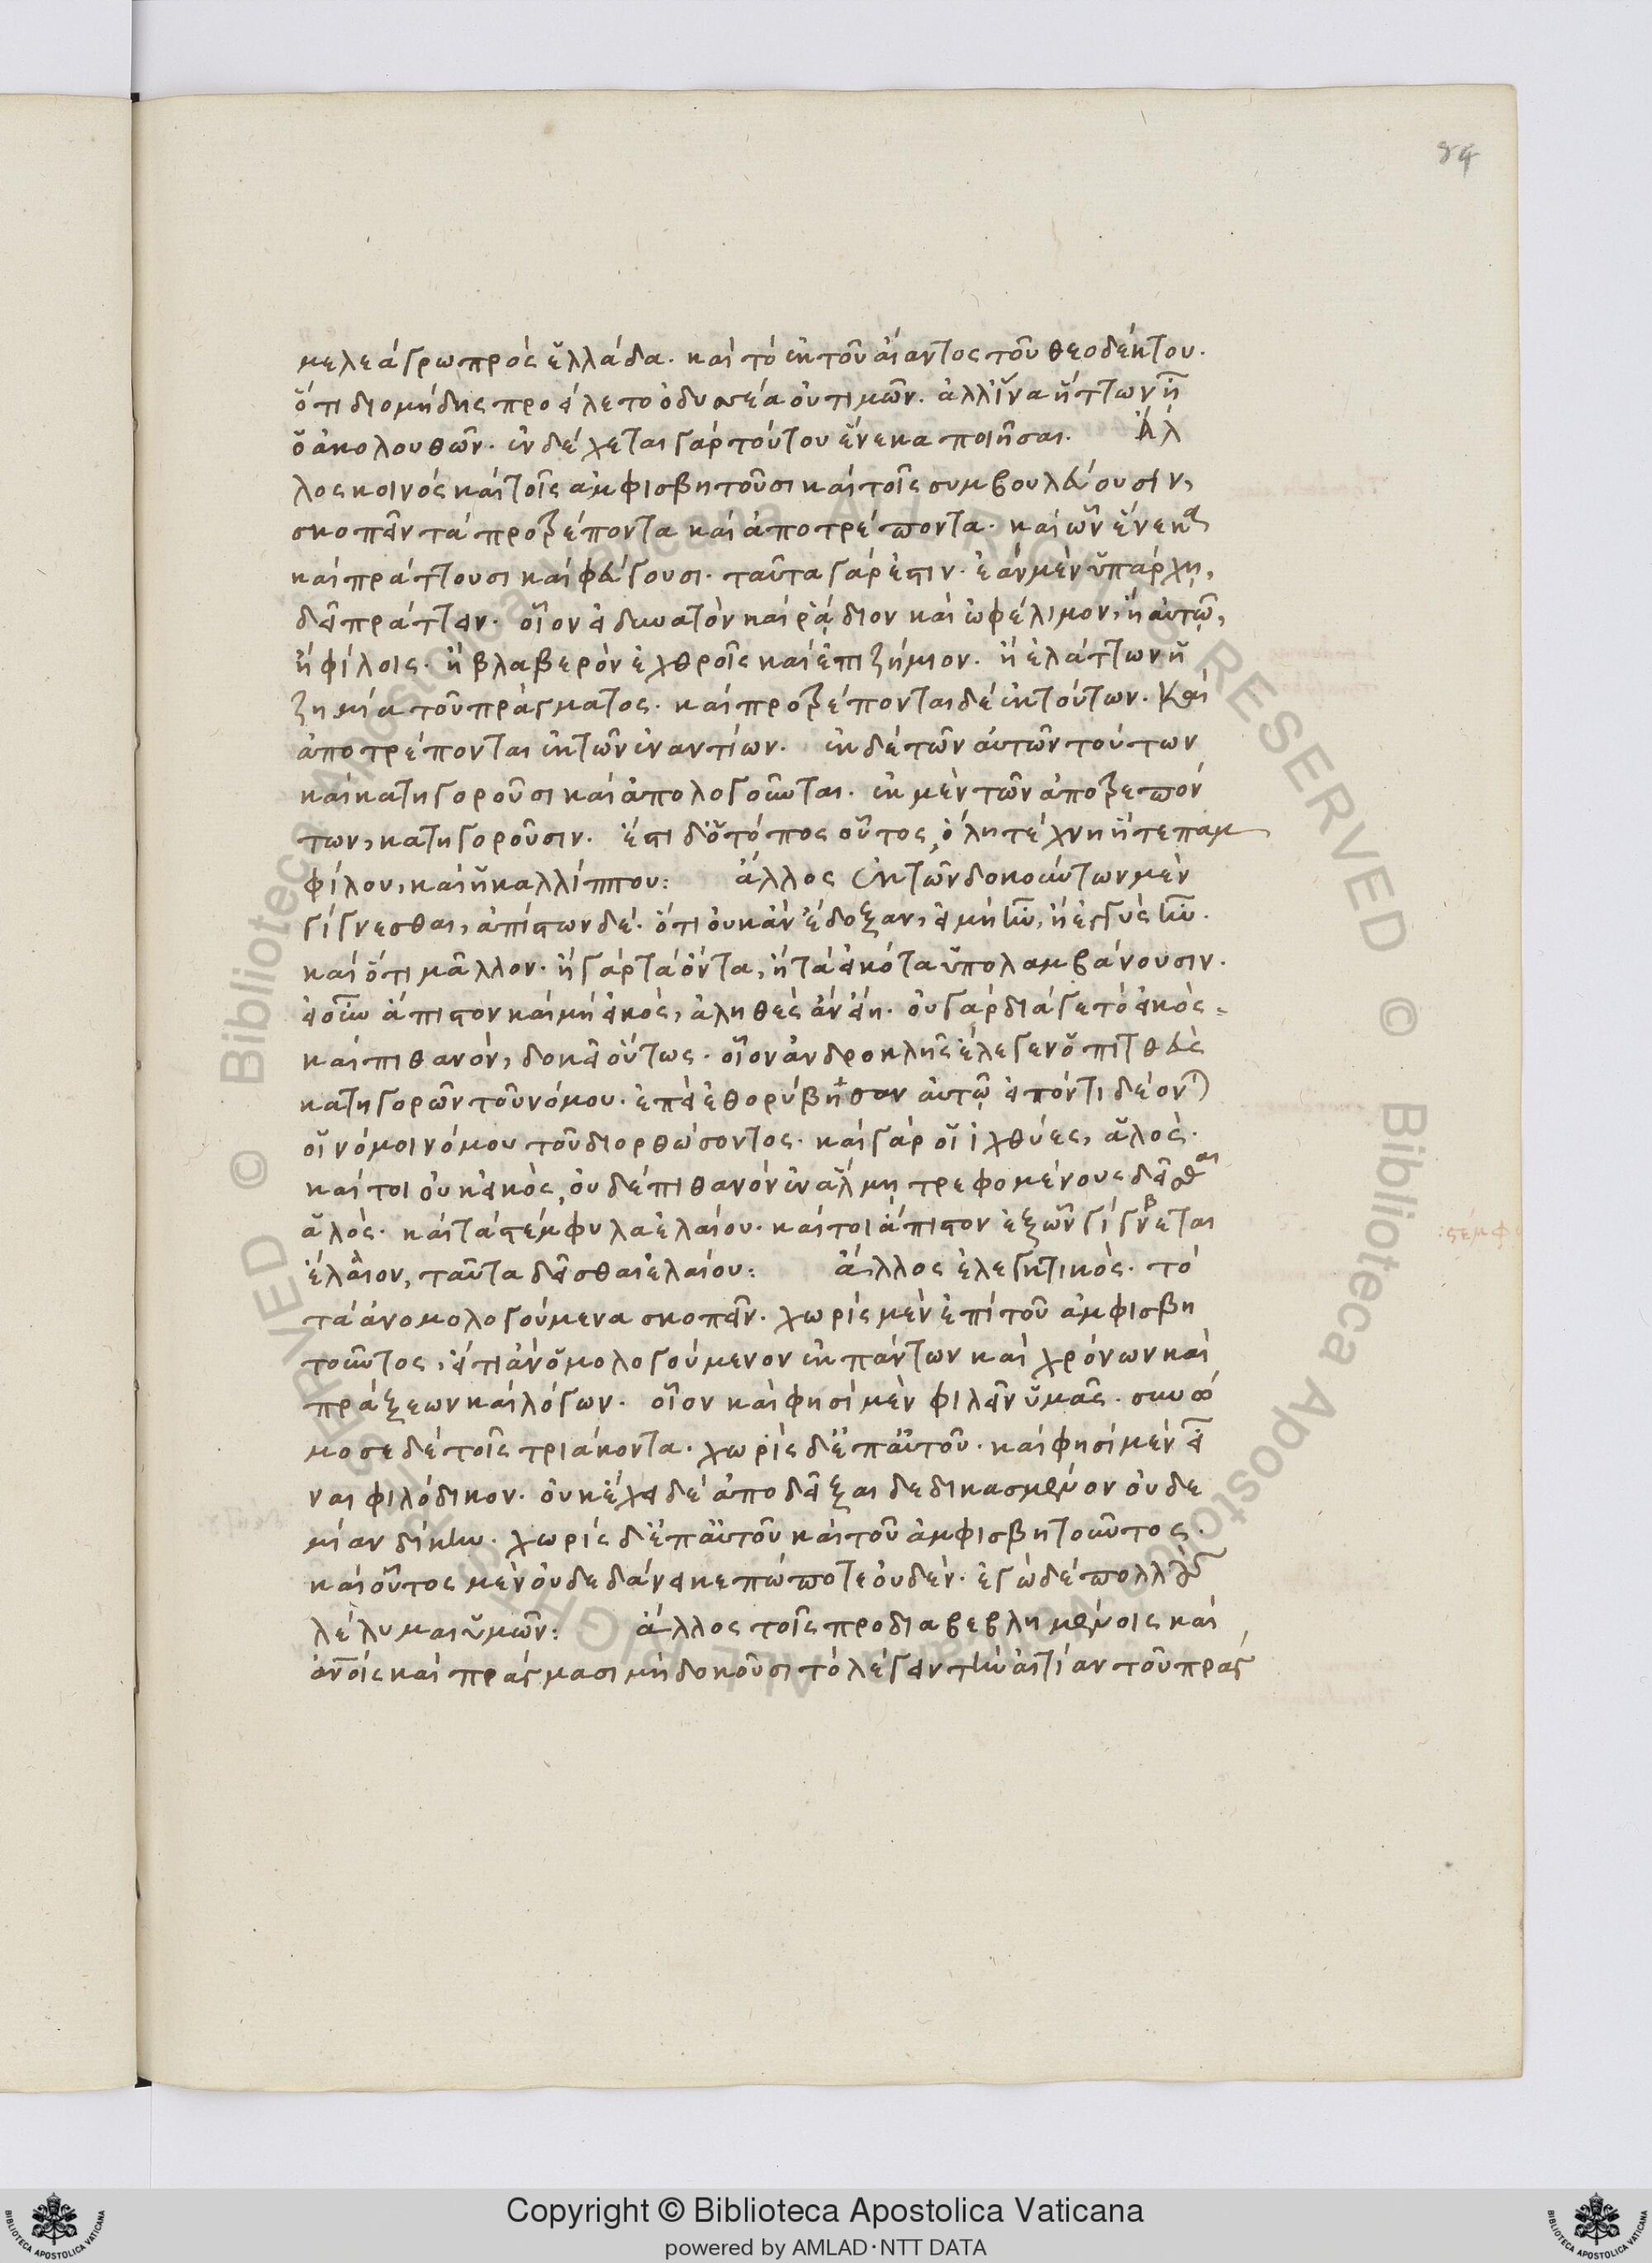 84
μελεάγρω πρὸς ἑλλάδα. καὶ τὸ ἐκ τοῦ αἴαντος τοῦ θεοδέκτου.
ὅτι διομήδης προείλετο ὀδυσσέα οὐ τιμῶν. ἀλλ' ἵνα ἥττων ἦ
ὁ ἀκολουθῶν. ἐνδέχεται γὰρ τούτου ἕνεκα ποιῆσαι. Ἄλ
λος κοινὸς καὶ τοῖς ἀμφισβητοῦσι καὶ τοῖς συμβουλεύουσιν,
σκοπεῖν τὰ προτρέποντα καὶ ἀποτρέποντα. καὶ ὧν ἕνεκα
καὶ πράττουσι καὶ φεύγουσι. ταῦτα γάρ ἐστιν. ἐὰν μὲν ὑπάρχῃ,
δεῖ πράττειν. οἷον εἰ δυνατὸν καὶ ῥάδιον καὶ ὠφέλιμον, ἢ αὐτῷ,
ἢ φίλοις. ἢ βλαβερὸν ἐχθροῖς καὶ ἐπιζήμιον. ἢ ἐλάττων ἡ
ζημία τοῦ πράγματος. καὶ προτρέπονται δὲ ἐκ τούτων. Καὶ
ἀποτρέπονται ἐκ τῶν ἐναντίων. ἐκ δὲ τῶν αὐτῶν τούτων
καὶ κατηγοροῦσι καὶ ἀπολογοῦνται. ἐκ μὲν τῶν ἀποτρεπόν
των, κατηγοροῦσιν. ἔστι δ' ὁ τόπος οὗτος, ὅλη τέχνη ἥ τε παμ
φίλου, καὶ ἡ καλλίππου: ἄλλος ἐκ τῶν δοκούντων μὲν
γίγνεσθαι, ἀπίστων δέ. ὅτι οὐκ ἂν ἔδοξαν, εἰ μὴ ἦν, ἢ ἐγγὺς ἦν.
καὶ ὅτι μᾶλλον. ἢ γὰρ τὰ ὄντα, ἢ τὰ εἰκότα ὑπολαμβάνουσιν.
εἰ οὖν ἄπιστον καὶ μὴ εἰκὸς, ἀληθὲς ἂν εἴη. οὐ γὰρ διά γε τὸ εἰκὸς
καὶ πιθανὸν, δοκεῖ οὕτως. οἷον ἀνδροκλῆς ἔλεγεν ὁ πιτθεὺς
κατηγορῶν τοῦ νόμου. ἐπεὶ ἐθορύβησαν αὐτῷ εἰπόντι δέον)
οἱ νόμοι νόμου τοῦ διορθώσοντος. καὶ γὰρ οἱ ἰχθύες, ἁλὸς.
καίτοι οὐκ εἰκὸς, οὐδὲ πιθανὸν ἐν ἅλμῃ τρεφομένους δεῖσθαι
ἁλὸς. καὶ τὰ στέμφυλα ἐλαίου. καίτοι ἄπιστον ἐξ ὧν γίγνεται
ἔλαιον, ταῦτα δεῖσθαι ἐλαίου: ἄλλος ἐλεγκτικὸς. τὸ
τὰ ἀνομολογούμενα σκοπεῖν. χωρὶς μὲν ἐπὶ τοῦ ἀμφισβη
τοῦντος, εἴ τι ἀνομολογούμενον ἐκ πάντων καὶ χρόνων καὶ
πράξεων καὶ λόγων. οἷον καὶ φησὶ μὲν φιλεῖν ὑμᾶς. συνώ
μοσε δὲ τοῖς τριάκοντα. χωρὶς δ' ἐπ' αὐτοῦ. καὶ φησὶ μὲν εἶ
ναι φιλόδικον. οὐκ ἔχει δὲ ἀποδεῖξαι δεδικασμένον οὐδε
μίαν δίκην. χωρὶς δ' ἐπ' αὐτοῦ καὶ τοῦ ἀμφισβητοῦντος.
καὶ οὗτος μὲν οὐ δεδάνεικε πώποτε οὐδὲν. ἐγὼ δὲ πολλοὺς
λέλυμαι ὑμῶν: ἄλλος τοῖς προδιαβεβλημένοις καὶ
ἀνοῖς καὶ πράγμασι μὴ δοκοῦσι τὸ λέγειν τὴν αἰτίαν τοῦ πραγ
Copyright © Biblioteca Apostolica Vaticana
powered by AMLAD·NTT DATA